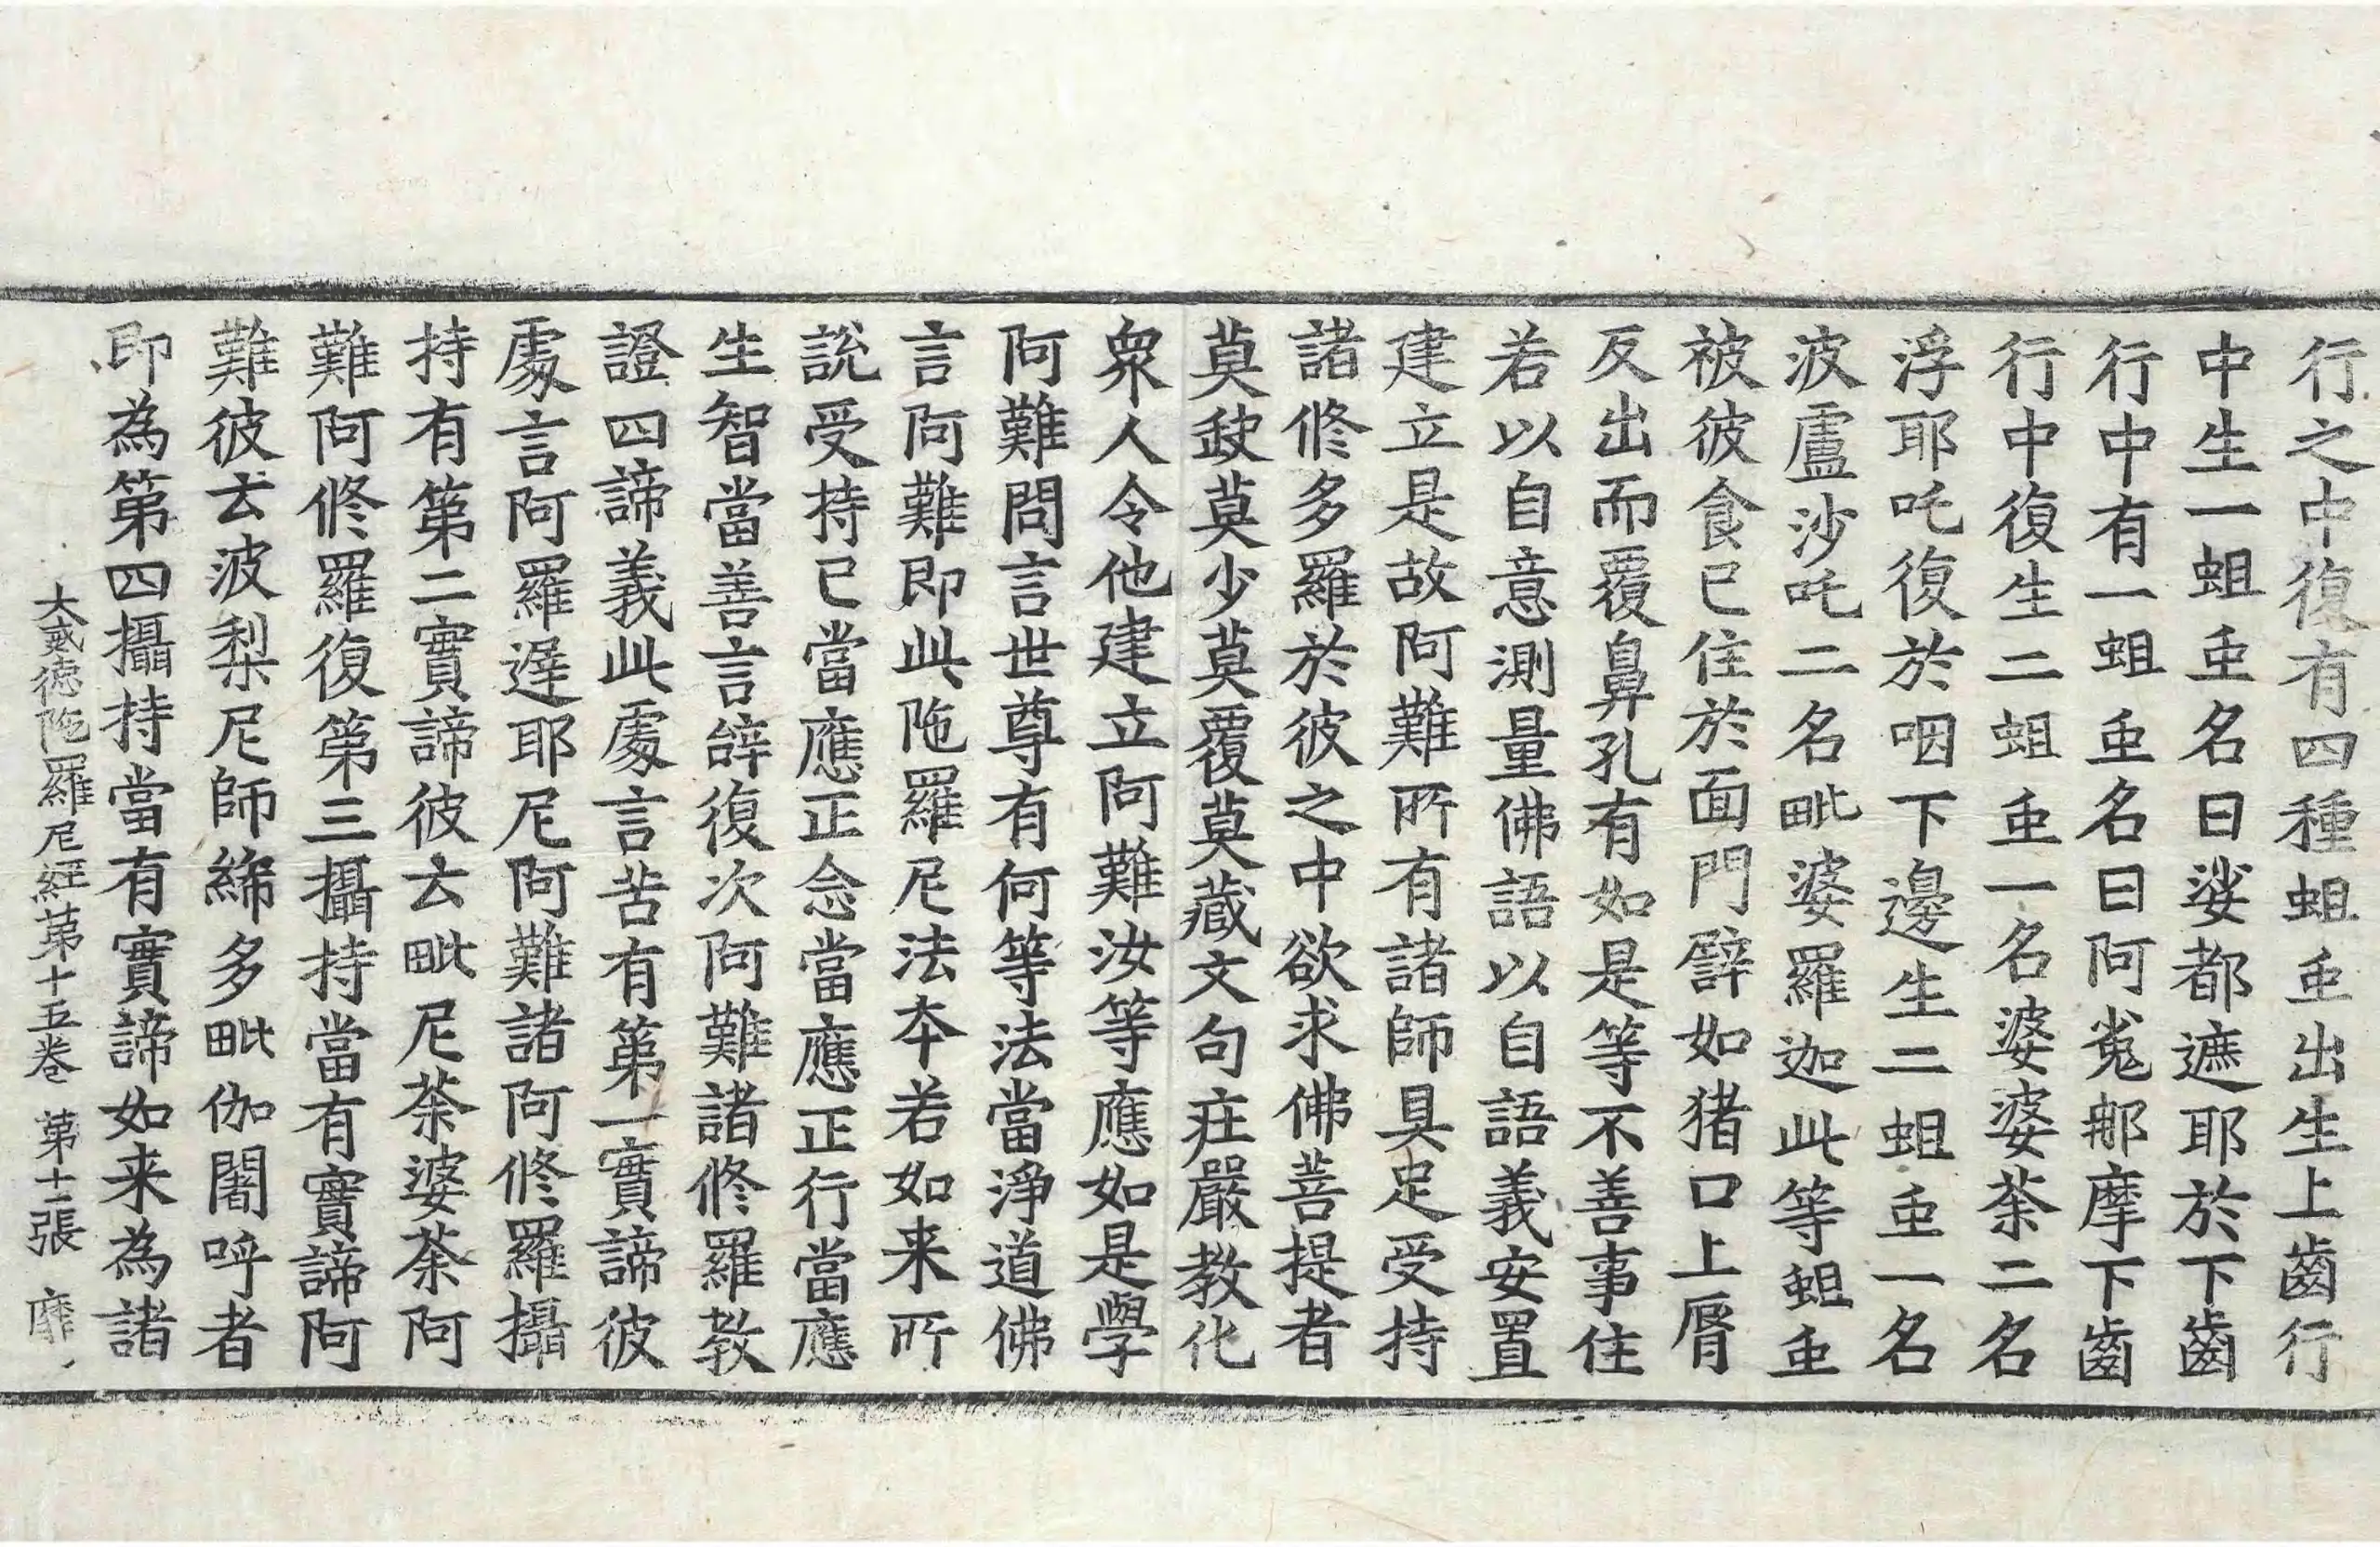 行之中復有四種蛆䖝出生上齒行
中生一蛆䖝名曰娑都遮耶於下齒
行中有一蛆䖝名曰阿㝹那摩下齒
行中復生二蛆䖝一名婆婆荼二名
浮耶吒復於咽下邊生二蛆䖝一名
波盧沙吒二名毗婆羅迦此等蛆䖝
被彼食已住於面門譬如猪口上脣
反出而覆鼻孔有如是等不善事住
若以自意測量佛語以自語義安置
建立是故阿難所有諸師具足受持
諸修多羅於彼之中欲求佛菩提者
莫𡙇莫少莫覆莫藏文句庄嚴教化
衆人令他建立阿難汝等應如是學
阿難問言世尊有何等法當淨道佛
言阿難即此陁羅尼法本若如来所
說受持已當應正念當應正行當應
生智當善言辝復次阿難諸修羅教
證四諦義此處言苦有第一實諦彼
處言阿羅遟耶尼阿難諸阿修羅攝
持有第二實諦彼云毗尼荼婆荼阿
難阿修羅復第三攝持當有實諦阿
難彼云波梨尼師絺多毗伽闍呼者
即為第四攝持當有實諦如来為諸
大威德陁羅尼經第十五卷 第十二張 靡